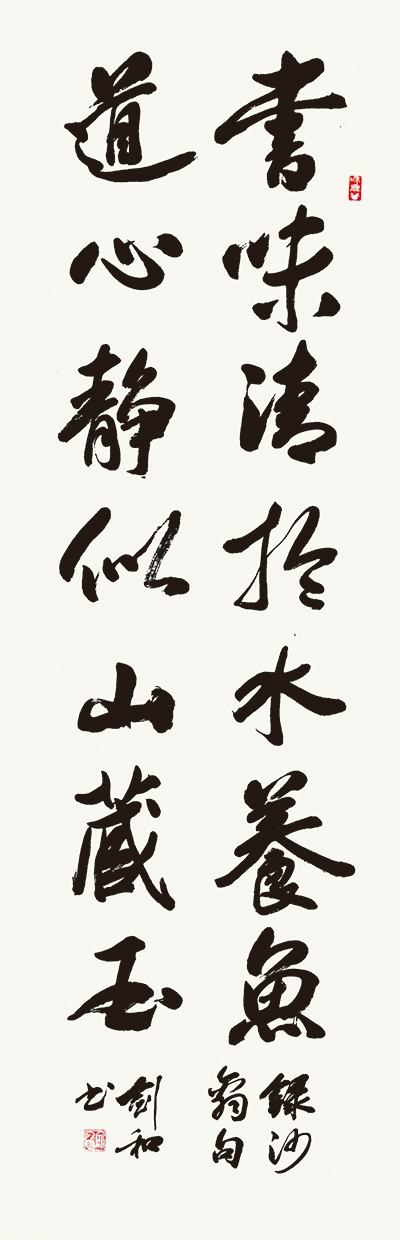 書味清於水養魚
録沙
翁句
道心静似山藏玉
劍和
书